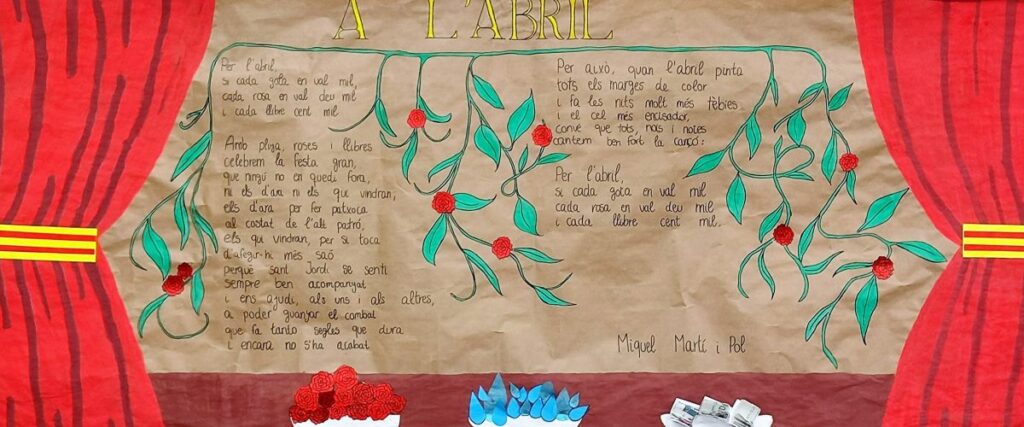 A L'ABRIL
Per l'abril,
si cada gota en val mil,
cada rosa en val deu mil
i cada llibre cent mil
Amb pluja, roses i llibres
celebrem la festa gran,
que ningú no en quedi fora,
ni els d'ara ni els qui vindran;
els d'ara per fer patxoca
al costat de l'alt patró,
els qui vindran, per si toca
d'afegir-hi més saó
perquè sant Jordi se senti
sempre ben acompanyat
i ens ajudi, als uns i als altres,
a poder guanyar el combat
que fa tants segles que dura
i encara no s'ha acabat
Per això, quan l'abril pinta
tots els marges de color
i fa les nits molt més tèbies
i el cel més encisador,
convé que tots, nois i noies
cantem ben fort la cançó:
Per l'abril,
si cada gota en val mil
cada rosa en val deu mil
i cada llibre cent mil.
Miquel Martí i Pol